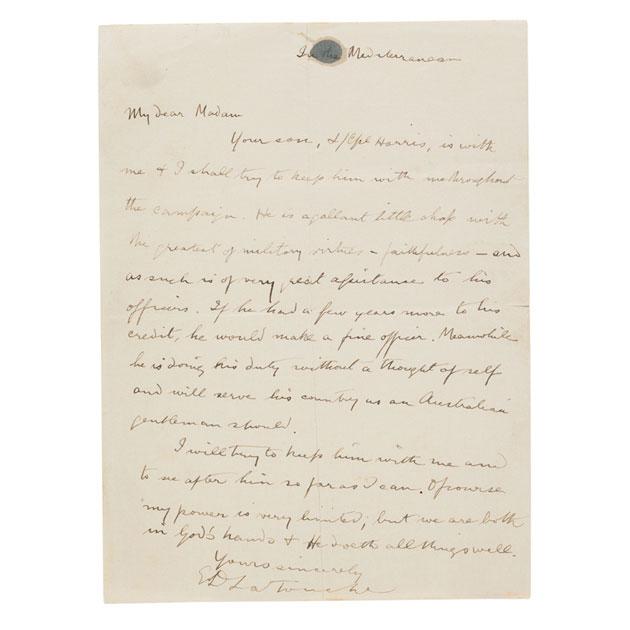 In the Mediterranean
My dear Madam
Your son, L/Cpl Harris, is with
me & I shall try to keep him with me throughout
the campaign. He is a gallant little chap with
the greatest of military virtues – faithfulness – and
as such is of very great assistance to his
officers. If he had a few years more to his
credit, he would make a fine officer. Meanwhile
he is doing his duty without a thought of self
and will serve his country as an Australian
gentleman should.
I will try to keep him with me and
to see after him so far as I can. Of course
my power is very limited; but we are both
in God's hands & He doeth all things well.
Yours sincerely
ED LaTouche